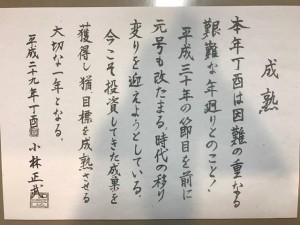 成熟
本年丁酉は因難の重なる
艱難な年廻りとのこと!
平成三十年の節目を前に
元号も改たまる、時代の移り
変りを迎えようとしている、
今こそ投資してきた成果を
獲得し猶目標を成熟させる
大切な一年となる。
平成二十九年丁酉 小林正武